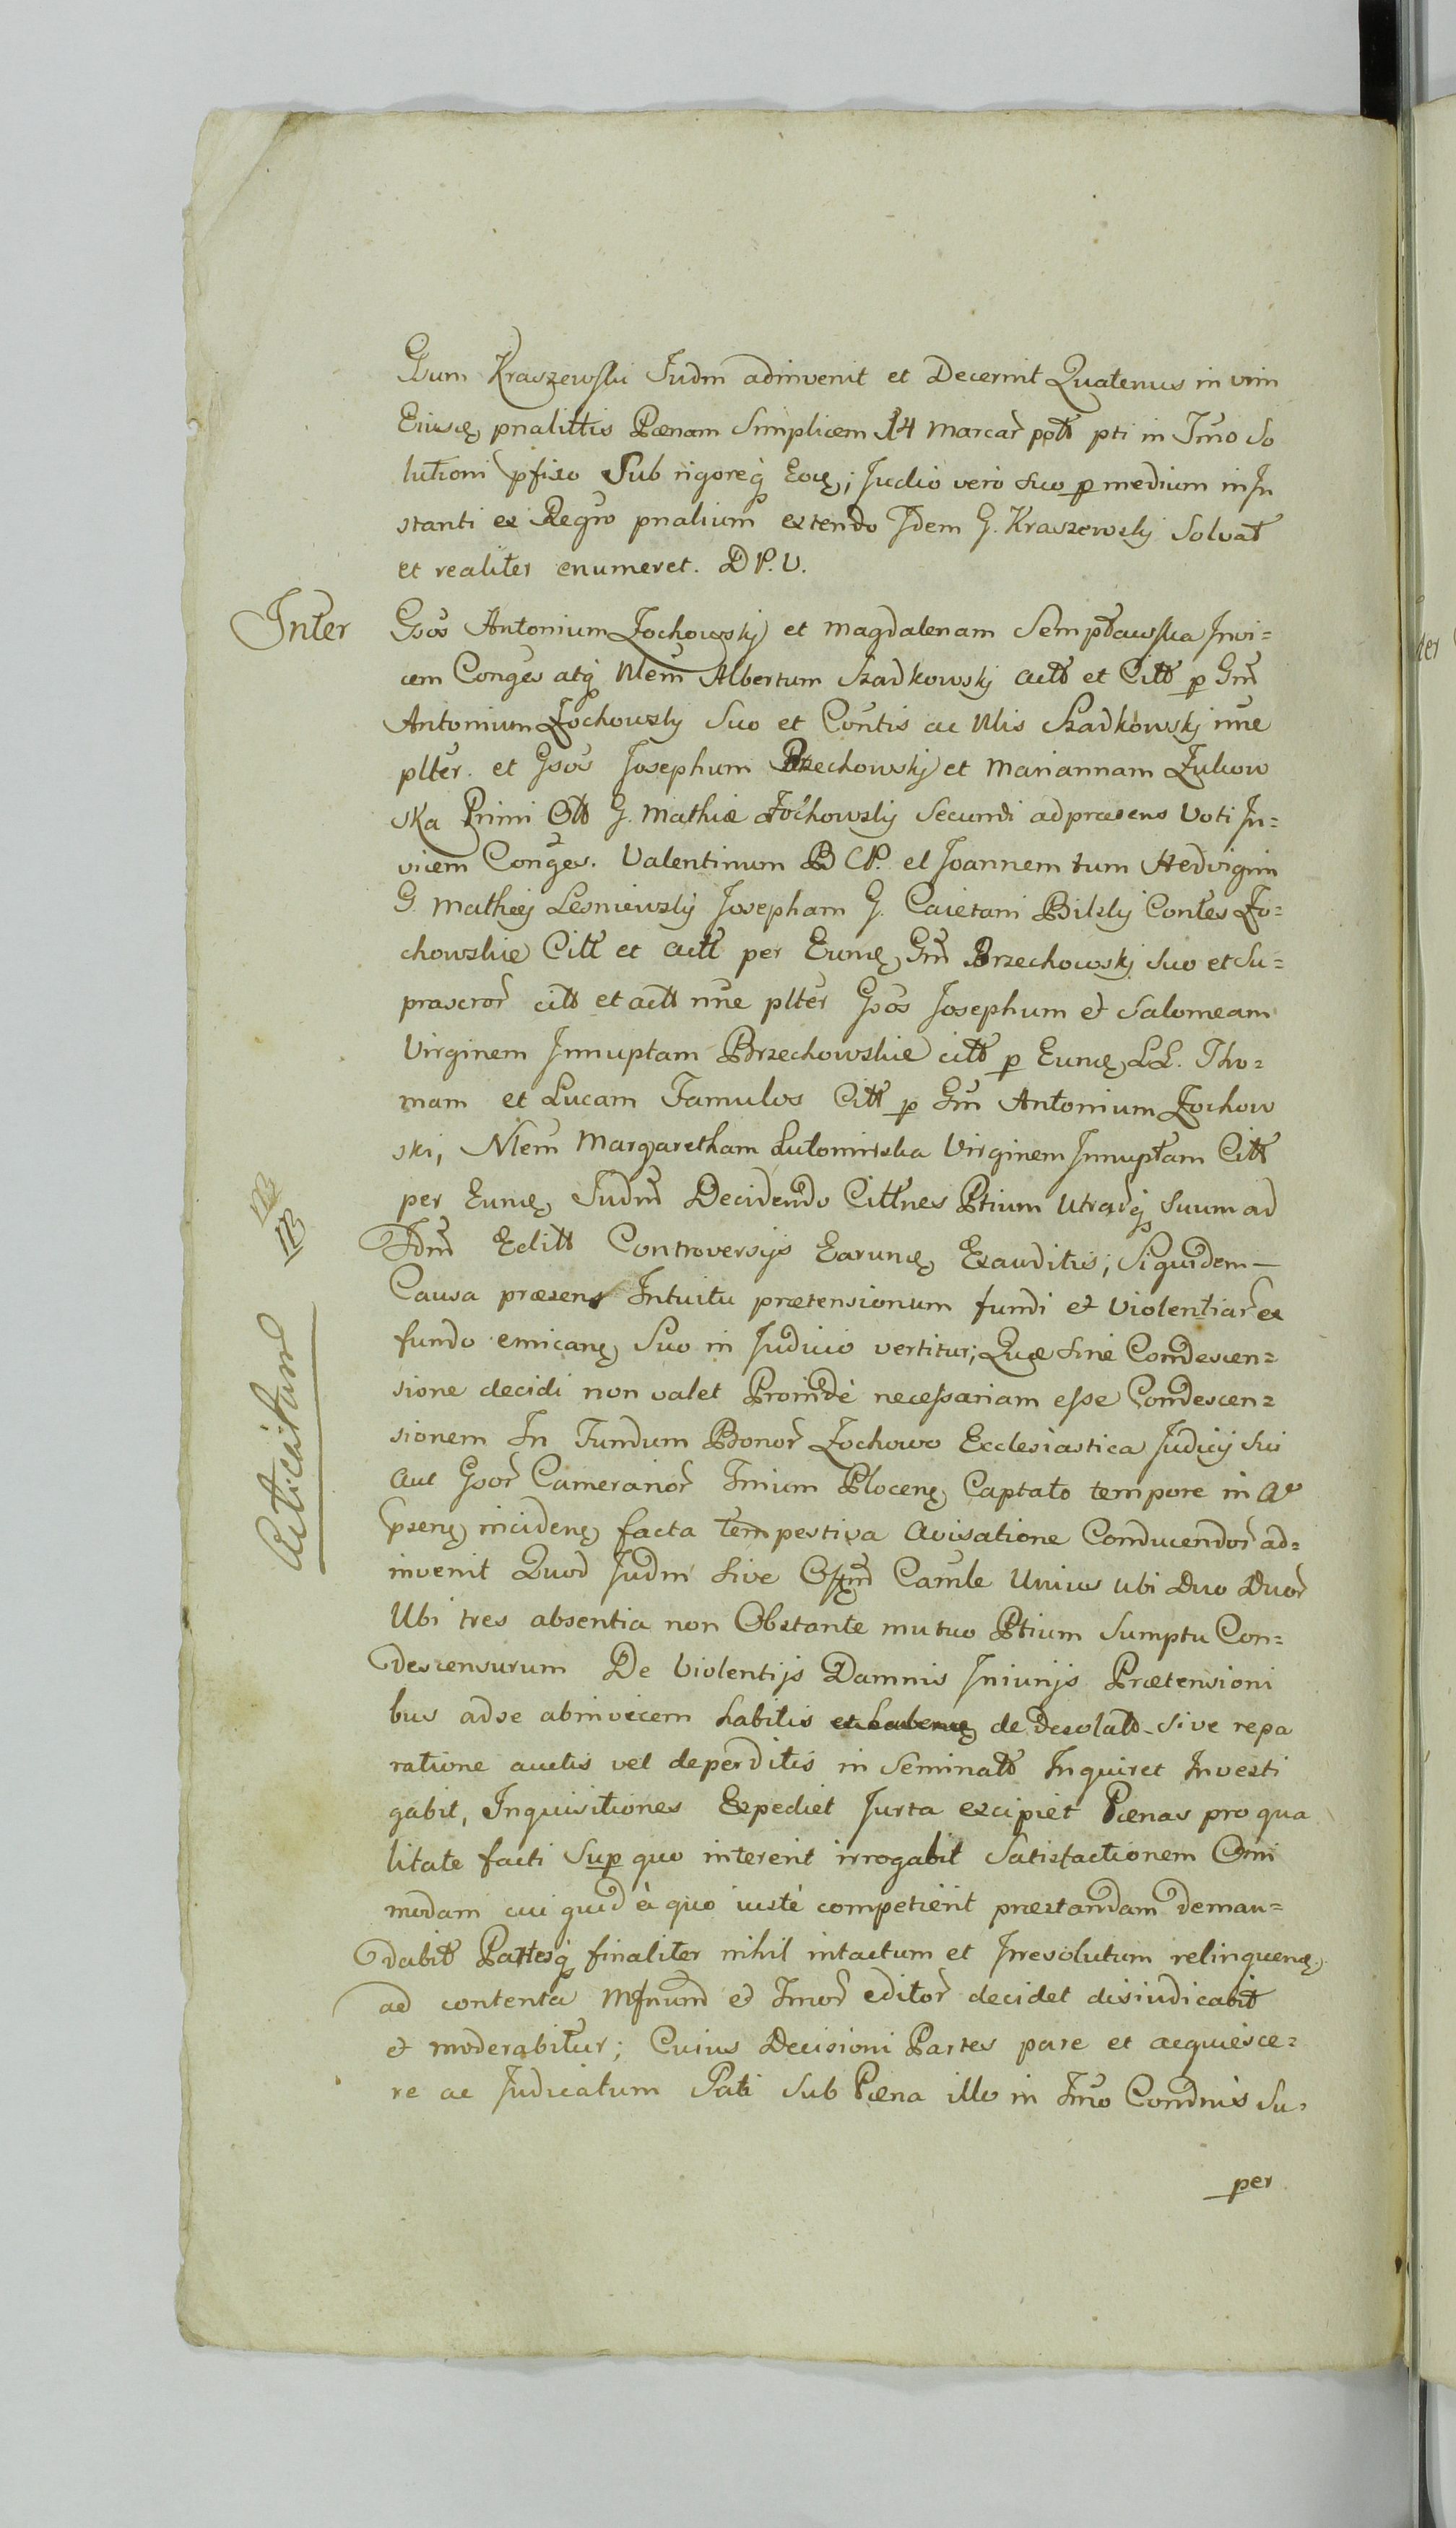 Gsum Kraszewski Judm adinvenit et Decernit Quatenus in vim
Eiusdę pnalittis Pænam Simplicem 14 Marcar̃ pptt pti in Tmo So
lutioni pfixo Sub rigoreq̃ Eodę; Judio vero suo p medium in In
stanti ex Regro pnalium extendo Idem G. Kraszewskj Solvat
et realiter enumeret. D P. V.
Inter Gsos Antonium Żochowskj et Magdalenam Sempławska Invi=
cem Conges atq̃ Nlem Albertum Szadkowskj actt et Citt p Gm
Antonium Żochowskj Suo et Contis ac Nlis Szadkowskj nne
plter. et Gsos Josephum Brzechowskj et Mariannam Żukow
ska Primi Ott G. Mathiæ Żochowskj Secundi ad præsens Voti In=
vicem Conges. Valentinum B CP. et Joannem tum Hedvigim
G. Mathiej Lesniewskj Josepham G. Caietani Bilskj Contes Żo=
chowskie Citt et actt per Eumdę Gm Brzechowskj Suo et Su=
prascror̃ citt et actt nne plter Gsos Josephum et Salomeam
Virginem Innuptam Brzechowskie citt p Eumdę LL. Tho=
mam et Lucam Famulos Citt p Gm Antonium Żochow
ski, Nlem Margaretham Lutomirska Virginem Innuptam Citt
per Eumdę Judm Decidendo Cittnes Ptium Utraq̃ Suum ad
Tdm Editt Controversijs Earumdę Exauditis; Siquidem —
Causa præsens Intuitu prætensionum fundi et Violentiar̃ ex
fundo emicanę Suo in Judicio vertitur; Quæ Sine Condescen=
sione decidi non valet Proindè necessariam esse Condescen=
sionem In Fundum Bonor̃ Żochowo Ecclesiastica Judicij Sui
aut Gsor̃ Camerarior̃ Tmium Plocenę Captato tempore in Ao
psenę incidenę facta tempestiva Avisatione Conducendor̃ ad=
invenit Quod Judm Sive Camle Unius ubi Duo Duor̃
Ubi tres absentia non Obstante mutuo Ptium Sumptu Con=
descensurum De Violentijs Damnis Iniurijs Prætensioni
bus ad se abinvicem habitis et habenę de desolatt Sive repa
ratione auctis vel deperditis in Seminatt Inquiret Investi
gabit, Inquisitiones Expediet Jurta excipiet Pænas pro qua
litate facti Sup quo intererit irrogabit Satisfactionem Omi
modam cui quid à quo iustè competierit præstandam deman=
dabit Partesq̃ finaliter nihil intactum et Irresolutum relinquenę
ad contenta et Tmor̃ editor̃ decidet disiudicabit
et moderabitur; Cuius Decisioni Partes pare et acquiesce=
re ac Judicatum Pati Sub Pæna illo in Tmo Condnis Su=
per
Acticatum
NB